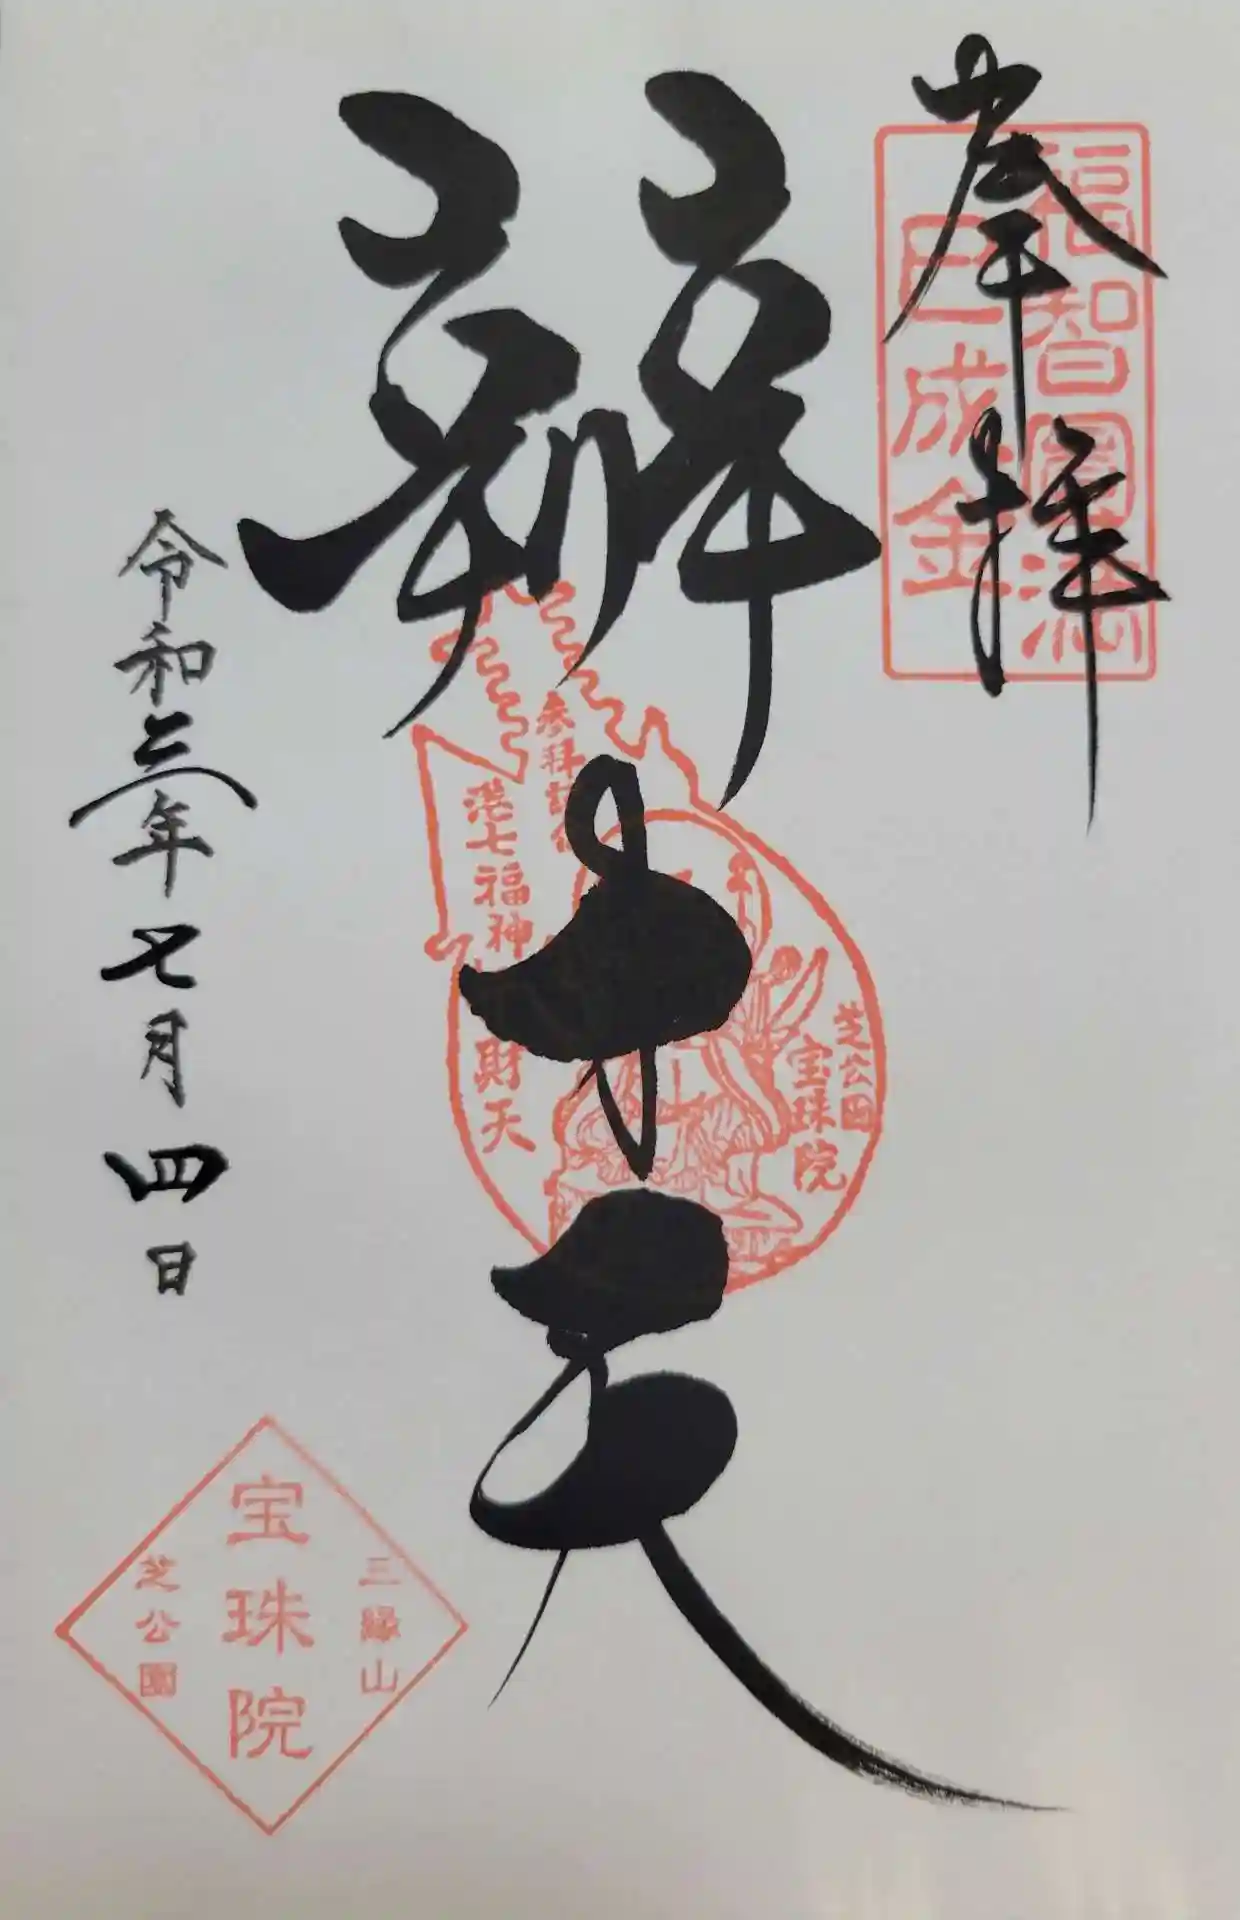 奉拝
福智圓満
巳成金
辨才天
参拝記念
港七福神
財天
芝公園
宝珠院
令和三年七月四日
三縁山
宝珠院
芝公園